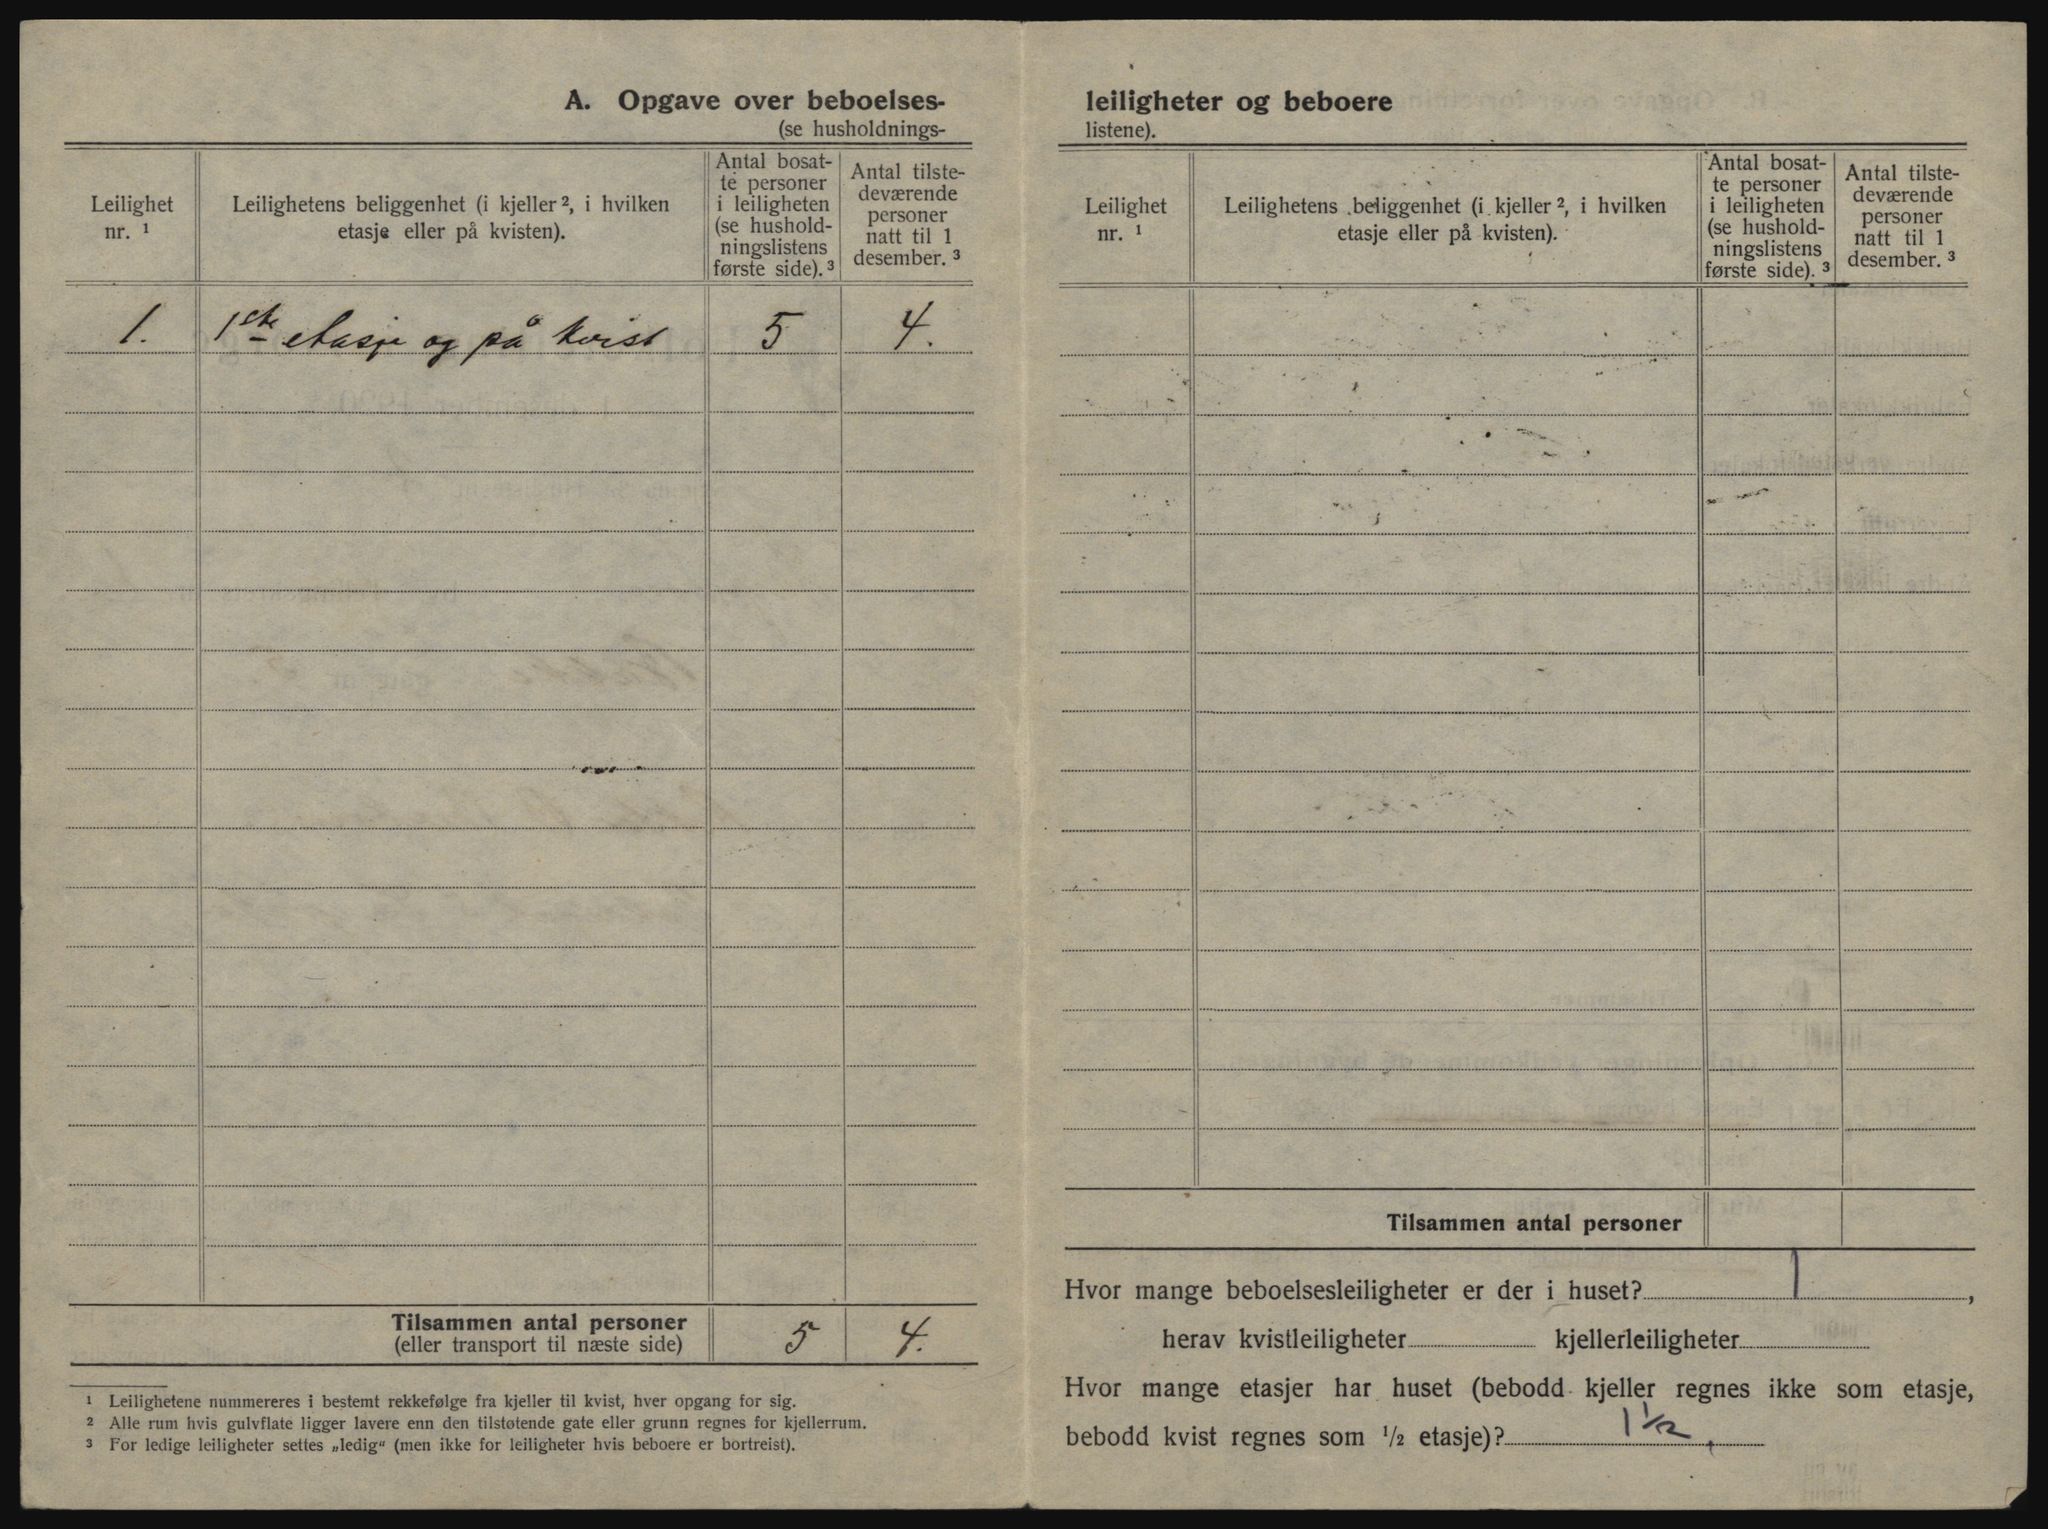 A. Opgave over beboelses-
(se husholdnings-
Leilighet
nr. ¹
Leilighetens beliggenhet (i kjeller ², i hvilken
etasje eller på kvisten).
Antal bosat-
te personer
i leiligheten
(se hushold-
ningslistens
første side). ³
Antal tilste-
deværende
personer
natt til 1
desember. ³
1. 1ste etasje og på kvist 5 4.
Tilsammen antal personer
(eller transport til næste side) 5 4.
¹ Leilighetene nummereres i bestemt rekkefølge fra kjeller til kvist, hver opgang for sig.
² Alle rum hvis gulvflate ligger lavere enn den tilstøtende gate eller grunn regnes for kjellerrum.
³ For ledige leiligheter settes „ledig“ (men ikke for leiligheter hvis beboere er bortreist).
leiligheter og beboere
listene).
Leilighet
nr. ¹
Leilighetens beliggenhet (i kjeller ², i hvilken
etasje eller på kvisten).
Antal bosat-
te personer
i leiligheten
(se hushold-
ningslistens
første side). ³
Antal tilste-
deværende
personer
natt til 1
desember. ³
Tilsammen antal personer
Hvor mange beboelsesleiligheter er der i huset? 1,
herav kvistleiligheter kjellerleiligheter
Hvor mange etasjer har huset (bebodd kjeller regnes ikke som etasje,
bebodd kvist regnes som ½ etasje)? 1 ½.